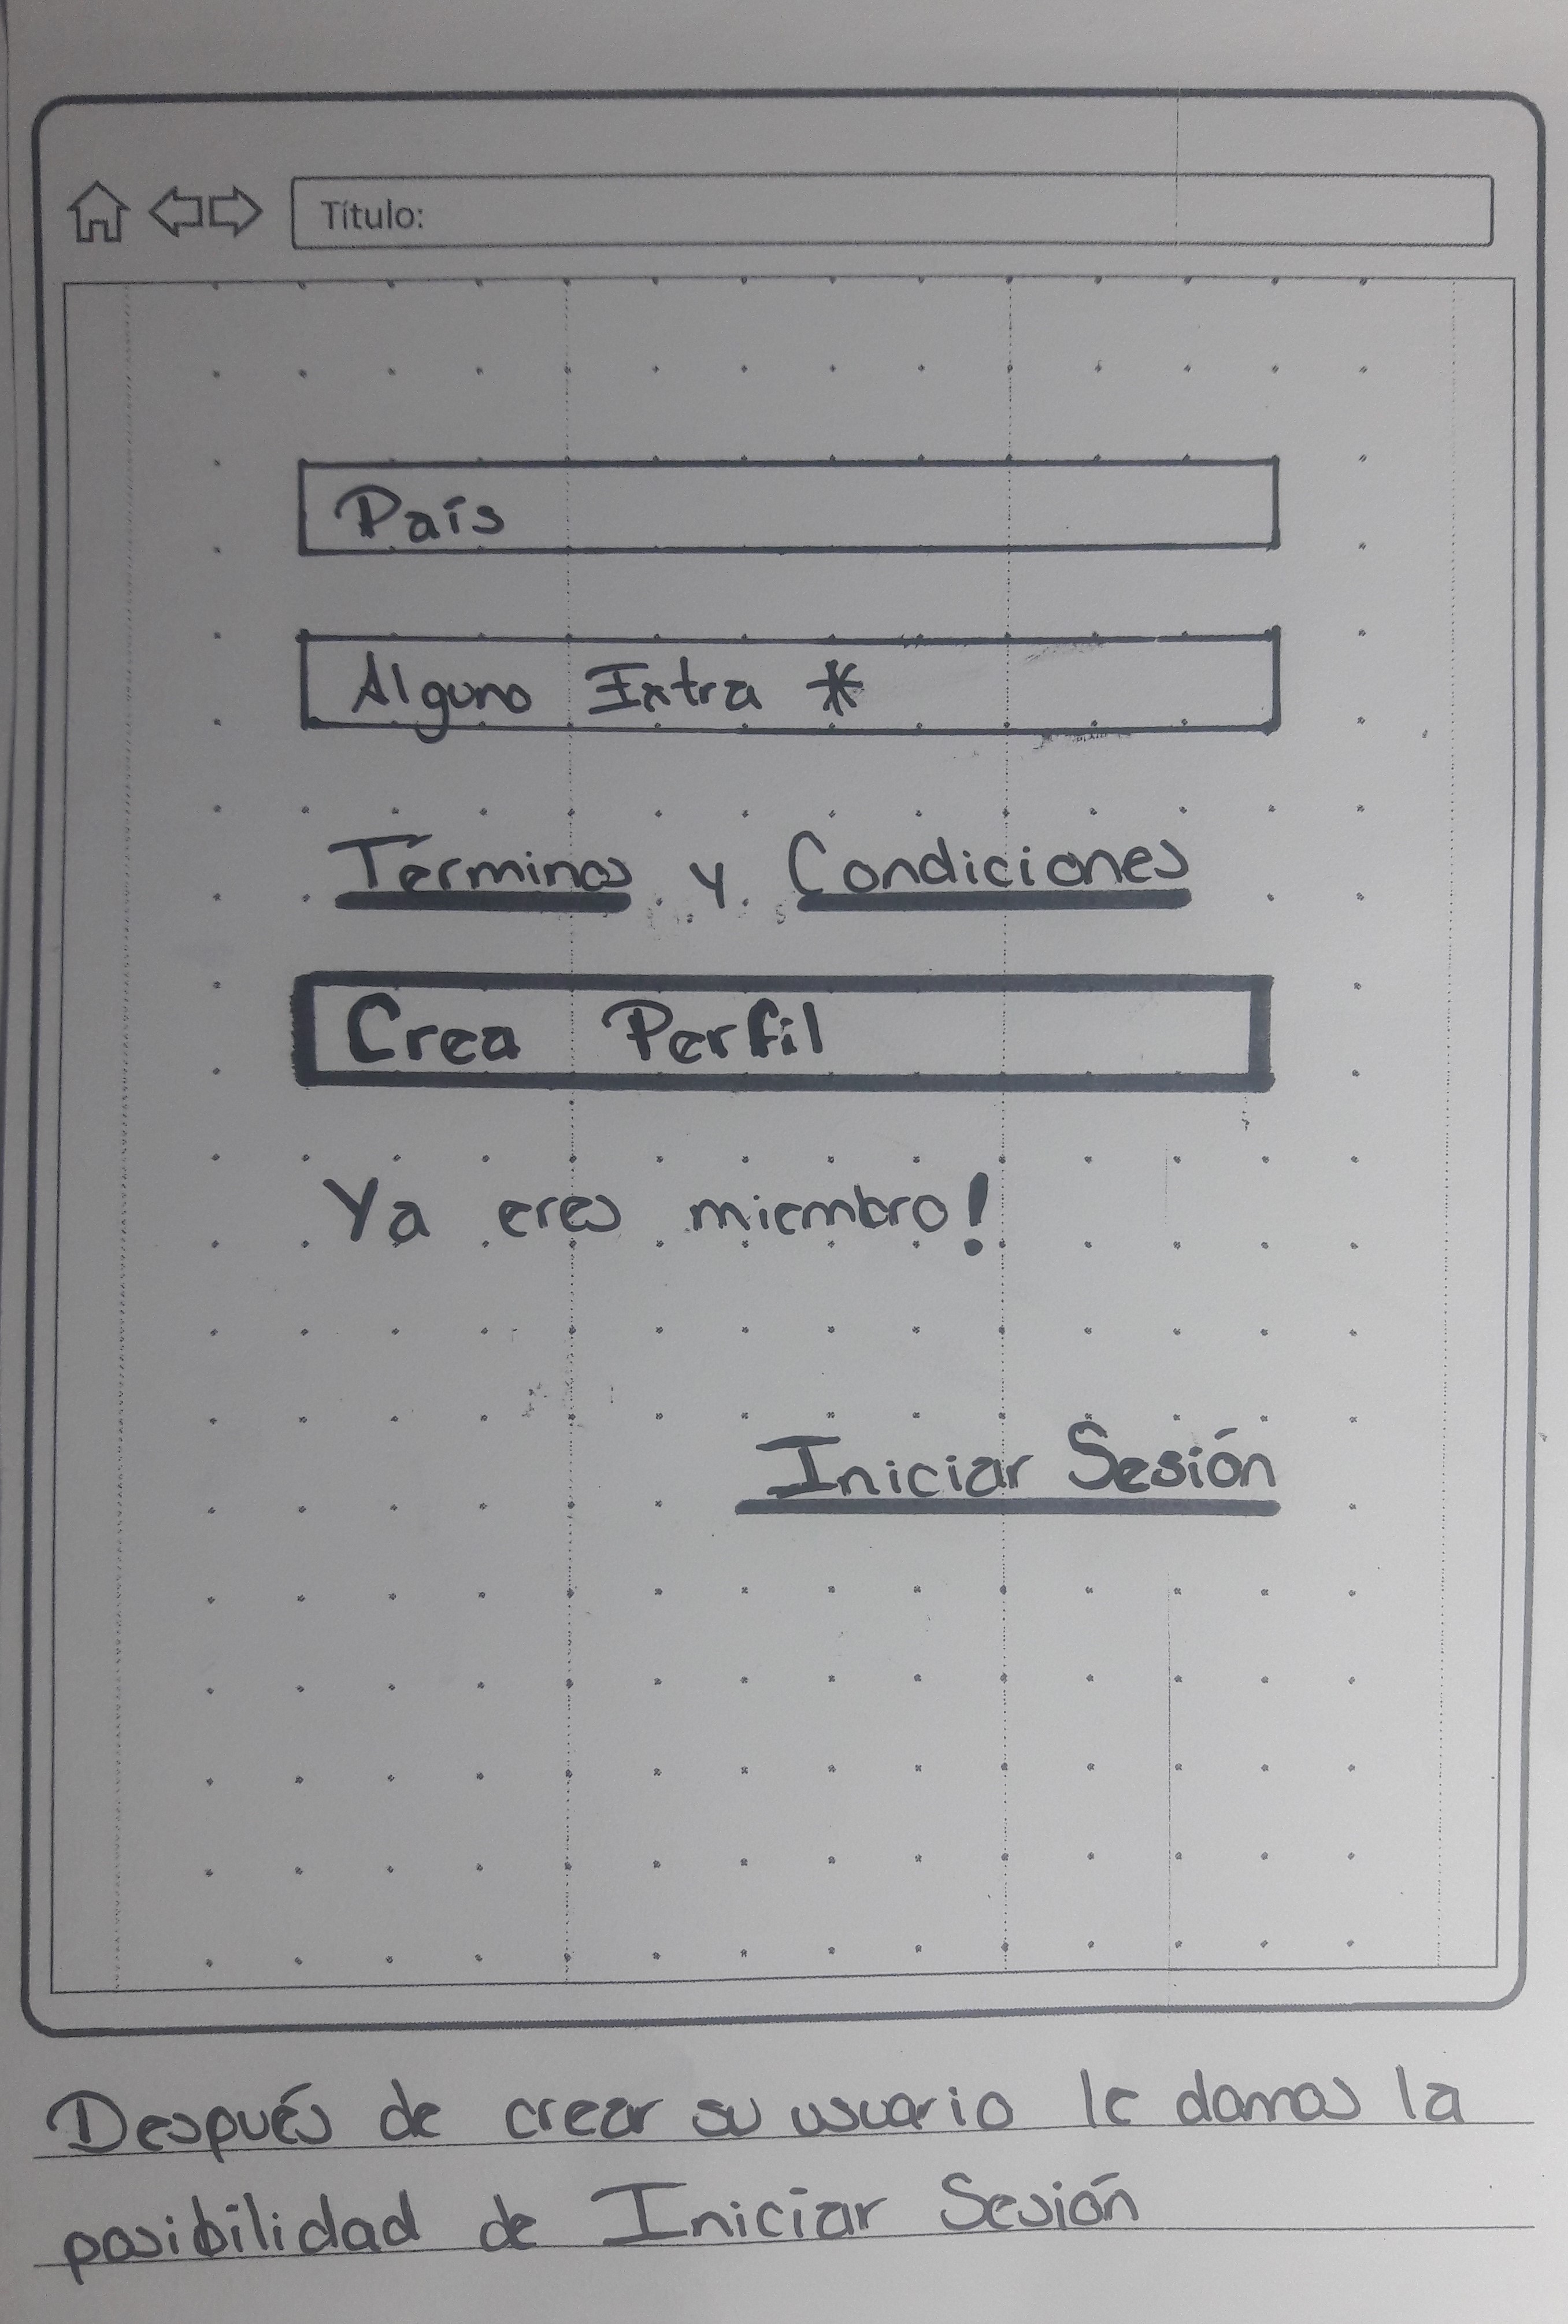 Título:
País
Alguno Extra *
Términos y Condiciones
Crea Perfil
Ya eres miembro!
Iniciar Sesión
Después de crear su usuario le damos la
posibilidad de Iniciar Sesión